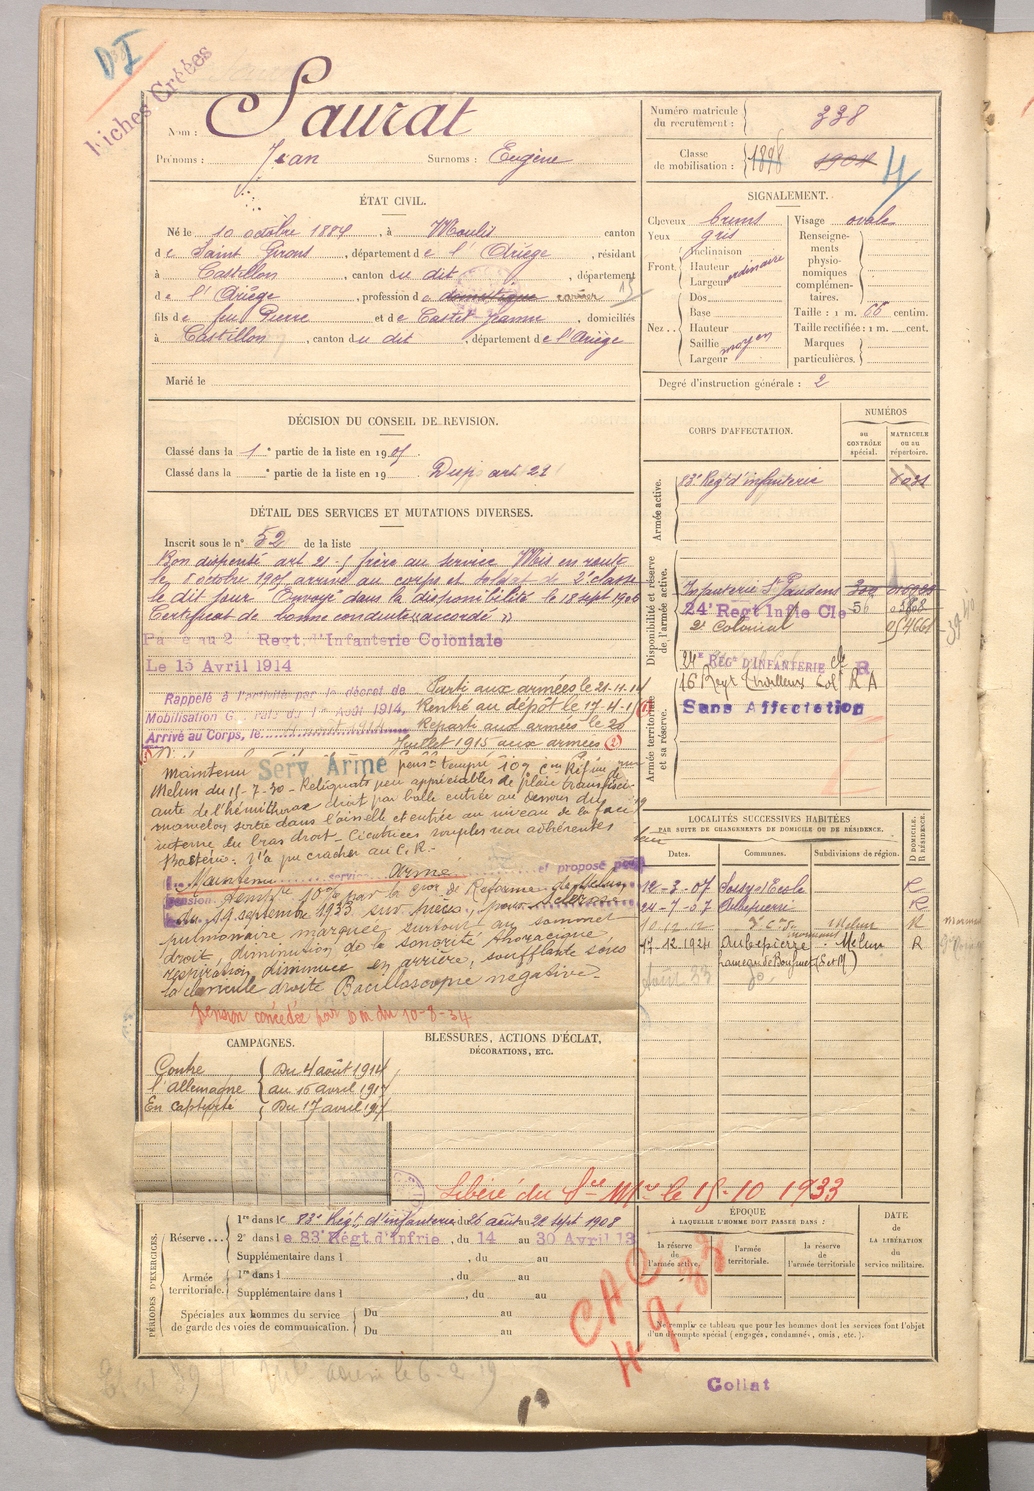 D I
Fiches Créées
Nom : Saurat
Prénoms : Jean Surnoms : Eugène
Numéro matricule du recrutement : 338
Classe de mobilisation : 1898 1904
4
ÉTAT CIVIL.
Né le 10 octobre 1884, à Moulis canton
de Saint Girons, département de l'Ariège, résidant
à Castillon, canton du dit, département
de l'Ariège, profession de domestique
fils de feu Pierre et de Castet Jeanne, domiciliés
à Castillon, canton du dit, département de l'Ariège
Marié le
SIGNALEMENT.
Cheveux bruns
Yeux gris
Front. Inclinaison
Hauteur ordinaire
Largeur
Nez. Dos
Base
Hauteur
Saillie moyen
Largeur
Visage ovale
Renseignements physionomiques complémentaires.
Taille : 1 m. 66 centim.
Taille rectifiée : 1 m. cent.
Marques particulières.
Degré d'instruction générale : 2
DÉCISION DU CONSEIL DE REVISION.
Classé dans la 1e partie de la liste en 1905.
Classé dans la e partie de la liste en 19 . Disp art 21
DÉTAIL DES SERVICES ET MUTATIONS DIVERSES.
Inscrit sous le n° 52 de la liste
Bon dispensé art 21 - frère au service Mis en route
le 8 octobre 1905 arrivé au corps et soldat de 2e classe
le dit jour Envoyé dans la disponibilité le 18 sept 1906
Certificat de bonne conduite "accordé"
Passé au 2 Regt. d'Infanterie Coloniale
Le 15 Avril 1914
Rappelé à l'activité par le décret de
Mobilisation Générale du 1er Août 1914,
Arrivé au Corps, le août 1914
Parti aux armées le 21-11-14
Rentré au dépôt le 17-4-15
Reparti aux armées le 20
Juillet 1915 aux armées (2)
Maintenu Serv Armé pension tempre 10% Con Réforme
Melun du 15-7-30 - Reliquats peu appréciables de plaie transfixi-
ante de l'hémithorax droit par balle entrée au dessous du
mamelon sortie dans l'aisselle et entrée au niveau de la face
interne du bras droit - Cicatrices souples non adhérentes
Bactério : n'a pu cracher au C.R.-
Maintenu service Armé et proposé pour
pension tempre 10% par la Con de Réforme de Melun
du 19 septembre 1933 sur pièces, pour sclérose
pulmonaire marquée surtout au sommet
droit, diminution de la sonorité thoracique,
respiration diminuée en arrière, soufflante sous
la clavicule droite Bacilloscopie négative-
Pension concédée par DM du 10-8-34
CORPS D'AFFECTATION.
NUMÉROS
au CONTRÔLE spécial.
MATRICULE ou au répertoire.
Armée active.
83e Régt d'infanterie
Disponibilité et réserve de l'armée active.
Infanterie St Gaudens
24e Regt Infie Cle 56
2e Colonial
24e RÉGt D'INFANTERIE cle R
16 Regt Tirailleurs Col R A
Sans Affectation
Armée territoriale et sa réserve.
LOCALITÉS SUCCESSIVES HABITÉES
PAR SUITE DE CHANGEMENTS DE DOMICILE OU DE RÉSIDENCE.
D DOMICILE. R RÉSIDENCE.
Dates. Communes. Subdivisions de région.
12-3-07 Soisy s/ Ecole R
24-7-07 Aubepierre R
10.12.12 Melun R
17.12.1921 Aubepierre Melun R
Août 33 do
CAMPAGNES.
Contre l'Allemagne
Du 4 août 1914
au 16 avril 1917
En captivité Du 17 avril 1917
BLESSURES, ACTIONS D'ÉCLAT,
DÉCORATIONS, ETC.
Libéré du Sce Mre le 15-10 1933
PÉRIODES D'EXERCICES.
Réserve... 1re dans le 83e Régt d'infanterie du 26 août au 22 sept 1908
2e dans le 83e Régt d'Infrie, du 14 au 30 Avril 13
Supplémentaire dans l , du au
Armée territoriale. 1re dans l , du au
Supplémentaire dans l , du au
Spéciales aux hommes du service de garde des voies de communication. Du au
Du au
ÉPOQUE
À LAQUELLE L'HOMME DOIT PASSER DANS :
la réserve de l'armée active.
l'armée territoriale.
la réserve de l'armée territoriale
DATE de LA LIBÉRATION du service militaire.
Ne remplir ce tableau que pour les hommes dont les services font l'objet
d'un décompte spécial (engagés, condamnés, omis, etc.).
Collat